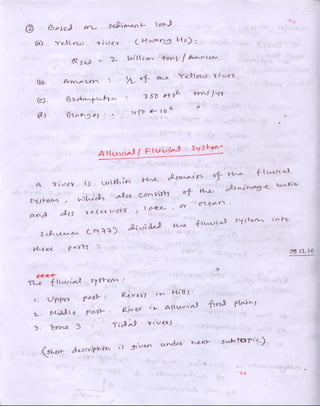 ② Based on sediment load
(a) Yellow river (Hwang Ho):
Qsed = 2 billion tons / Annum
(b). Amazon : ½ of the Yellow river
(c). Brdmputra : 750 × 10⁶ tons/yr
(d) Ganges : 450 × 10⁶ "
Alluvial / Fluvial System
A river is within the domain of the fluvial
system, which also consists of the drainage basin
and its reservoirs, lake, or ocean.
Schuman (1977) divided the fluvial system into
three parts :
09.12.10
The fluvial system :
1. Upper part : Rivers in Hills
2. Middle part : River in Alluvial flood plains
3. Zone 3 : Tidal rivers
(short description is given under next subtopic.)